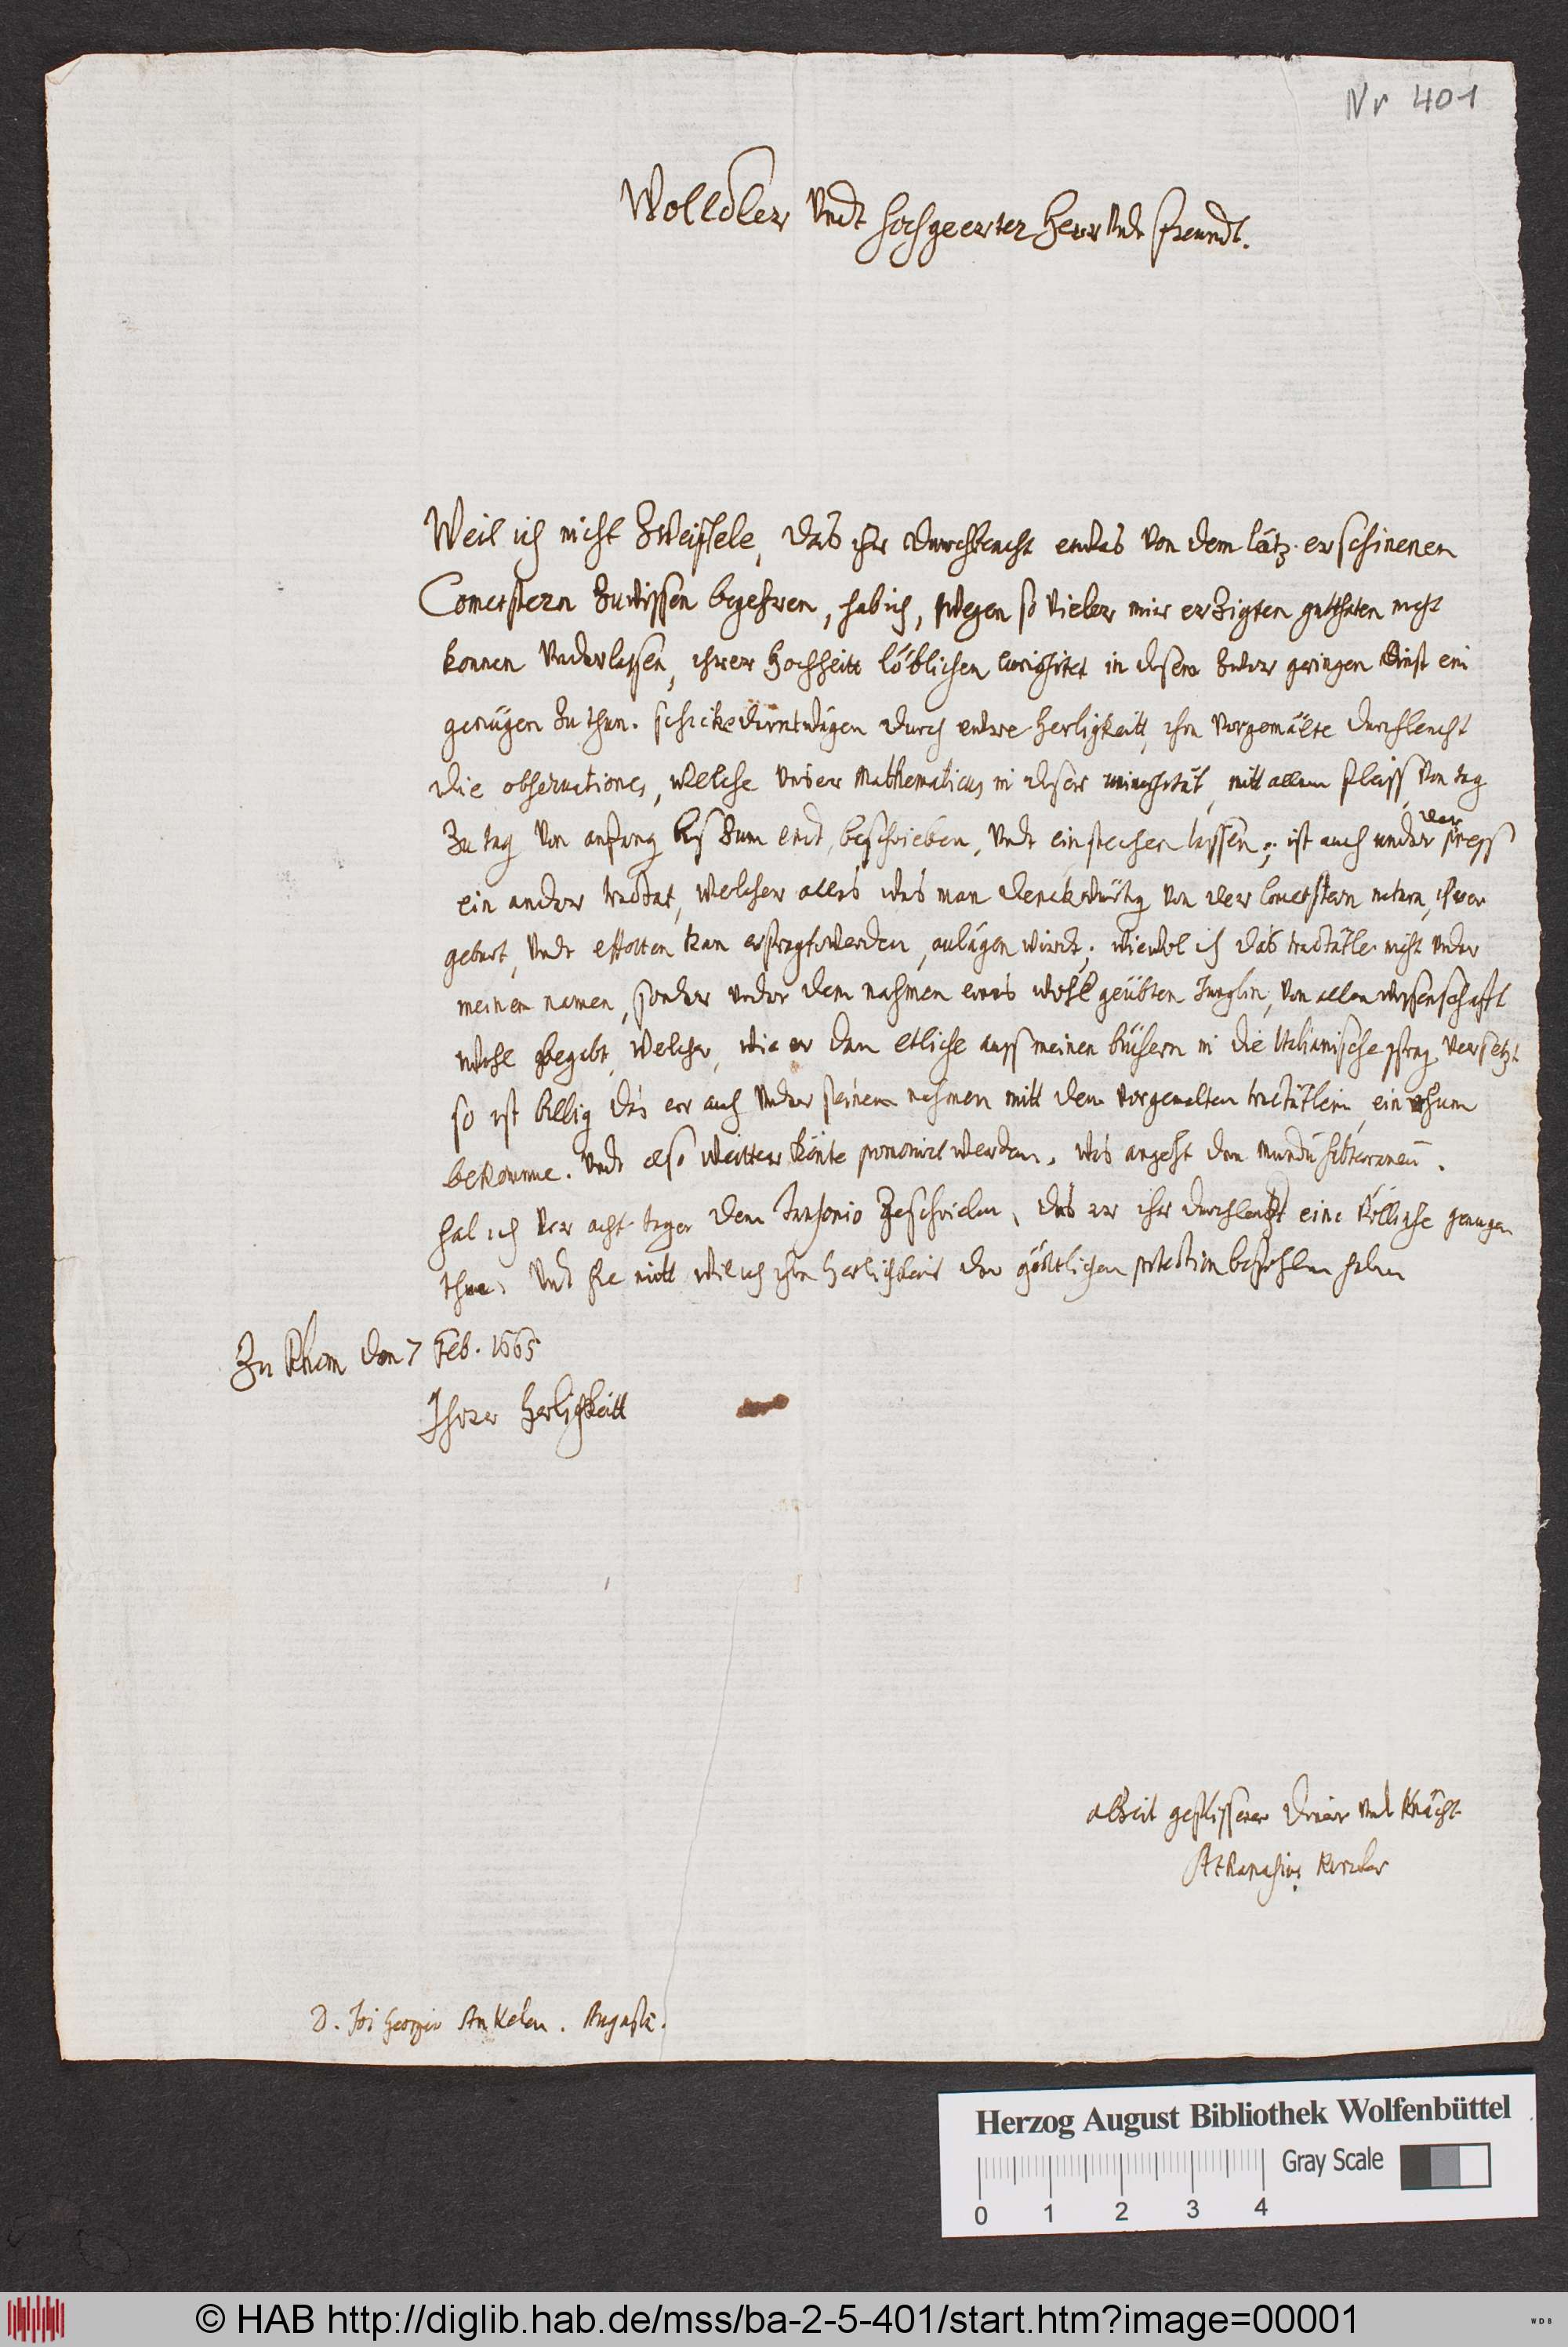 Nr 401
Wolledler Undt hochgeerter Herr Undt freundt.
Weil ich nicht Zweiffele, das ihr Durchleucht etwas Von dem lätz erschinenen
Cometstern Zuwissen begehren, hab ich, wegen so vieler mir erzigten gutthaten nicht
konnen Underlassen, ihrer Hochheitt löblichen curiositet in disem Zwar geringen Dinst ein
genügen Zu thun. schicke durch ewre Herligkeitt, ihr Vorgemälte Durchleucht
die observationes, welche Unser Mathematicus in diser universität, mitt allem fleiss, Von tag
Zu tag Von anfang biss Zum endt beschrieben, Undt einstechen lassen; ist auch under der press
ein ander tractat, welcher alles was man denckwürtig Von der Cometstern natura, ihrer
geburt, Undt effecten kan werden, wirdt; wiewol ich das tractätle nicht Under
meinem namen, sonder under dem nahmen eines wohl geübten Von allen wissenschafft
wohl begabt, welcher, wie er dan etliche auss meinen büchern in die Italianische sprag versetzt
so ist billig das er auch Under seinem nahmen mitt dem Vorgemelten tractätlein ein rhum
bekomme. Undt also weitter könte promovirt werden. Was angeht den Mundum subterraneum.
hab ich Vor acht tagen dem Jansonio geschrieben, das er ihr Durchleucht eine Völlige genugen
thue. Undt hie mitt wil ich ihr Herlichkeit der göttlichen protection befohlen haben
Zu Rhom den 7 Feb. 1665
Ihrer Herligkeitt
alzeit geflissener Diner Undt Knächt
Athanasius Kircher
D. Joi Georgio Ankelen. Augustæ.
Herzog August Bibliothek Wolfenbüttel
Gray Scale
0 1 2 3 4
© HAB http://diglib.hab.de/mss/ba-2-5-401/start.htm?image=00001
WDB